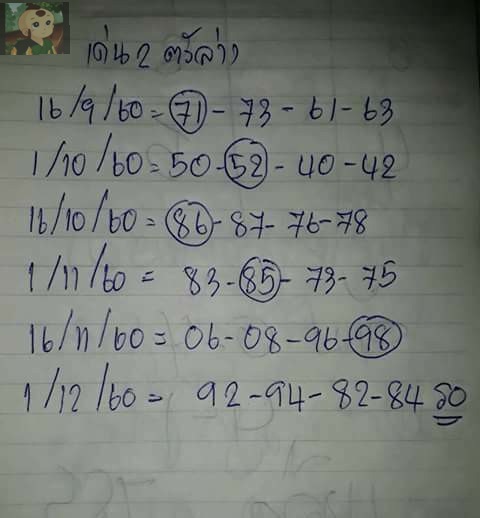 เด่น 2 ตัวล่าง
16/9/60 = 71 - 73 - 61 - 63
1/10/60 = 50 - 52 - 40 - 42
16/10/60 = 86 - 87 - 76 - 78
1/11/60 = 83 - 85 - 73 - 75
16/11/60 = 06 - 08 - 96 - 98
1/12/60 = 92 - 94 - 82 - 84 รอ